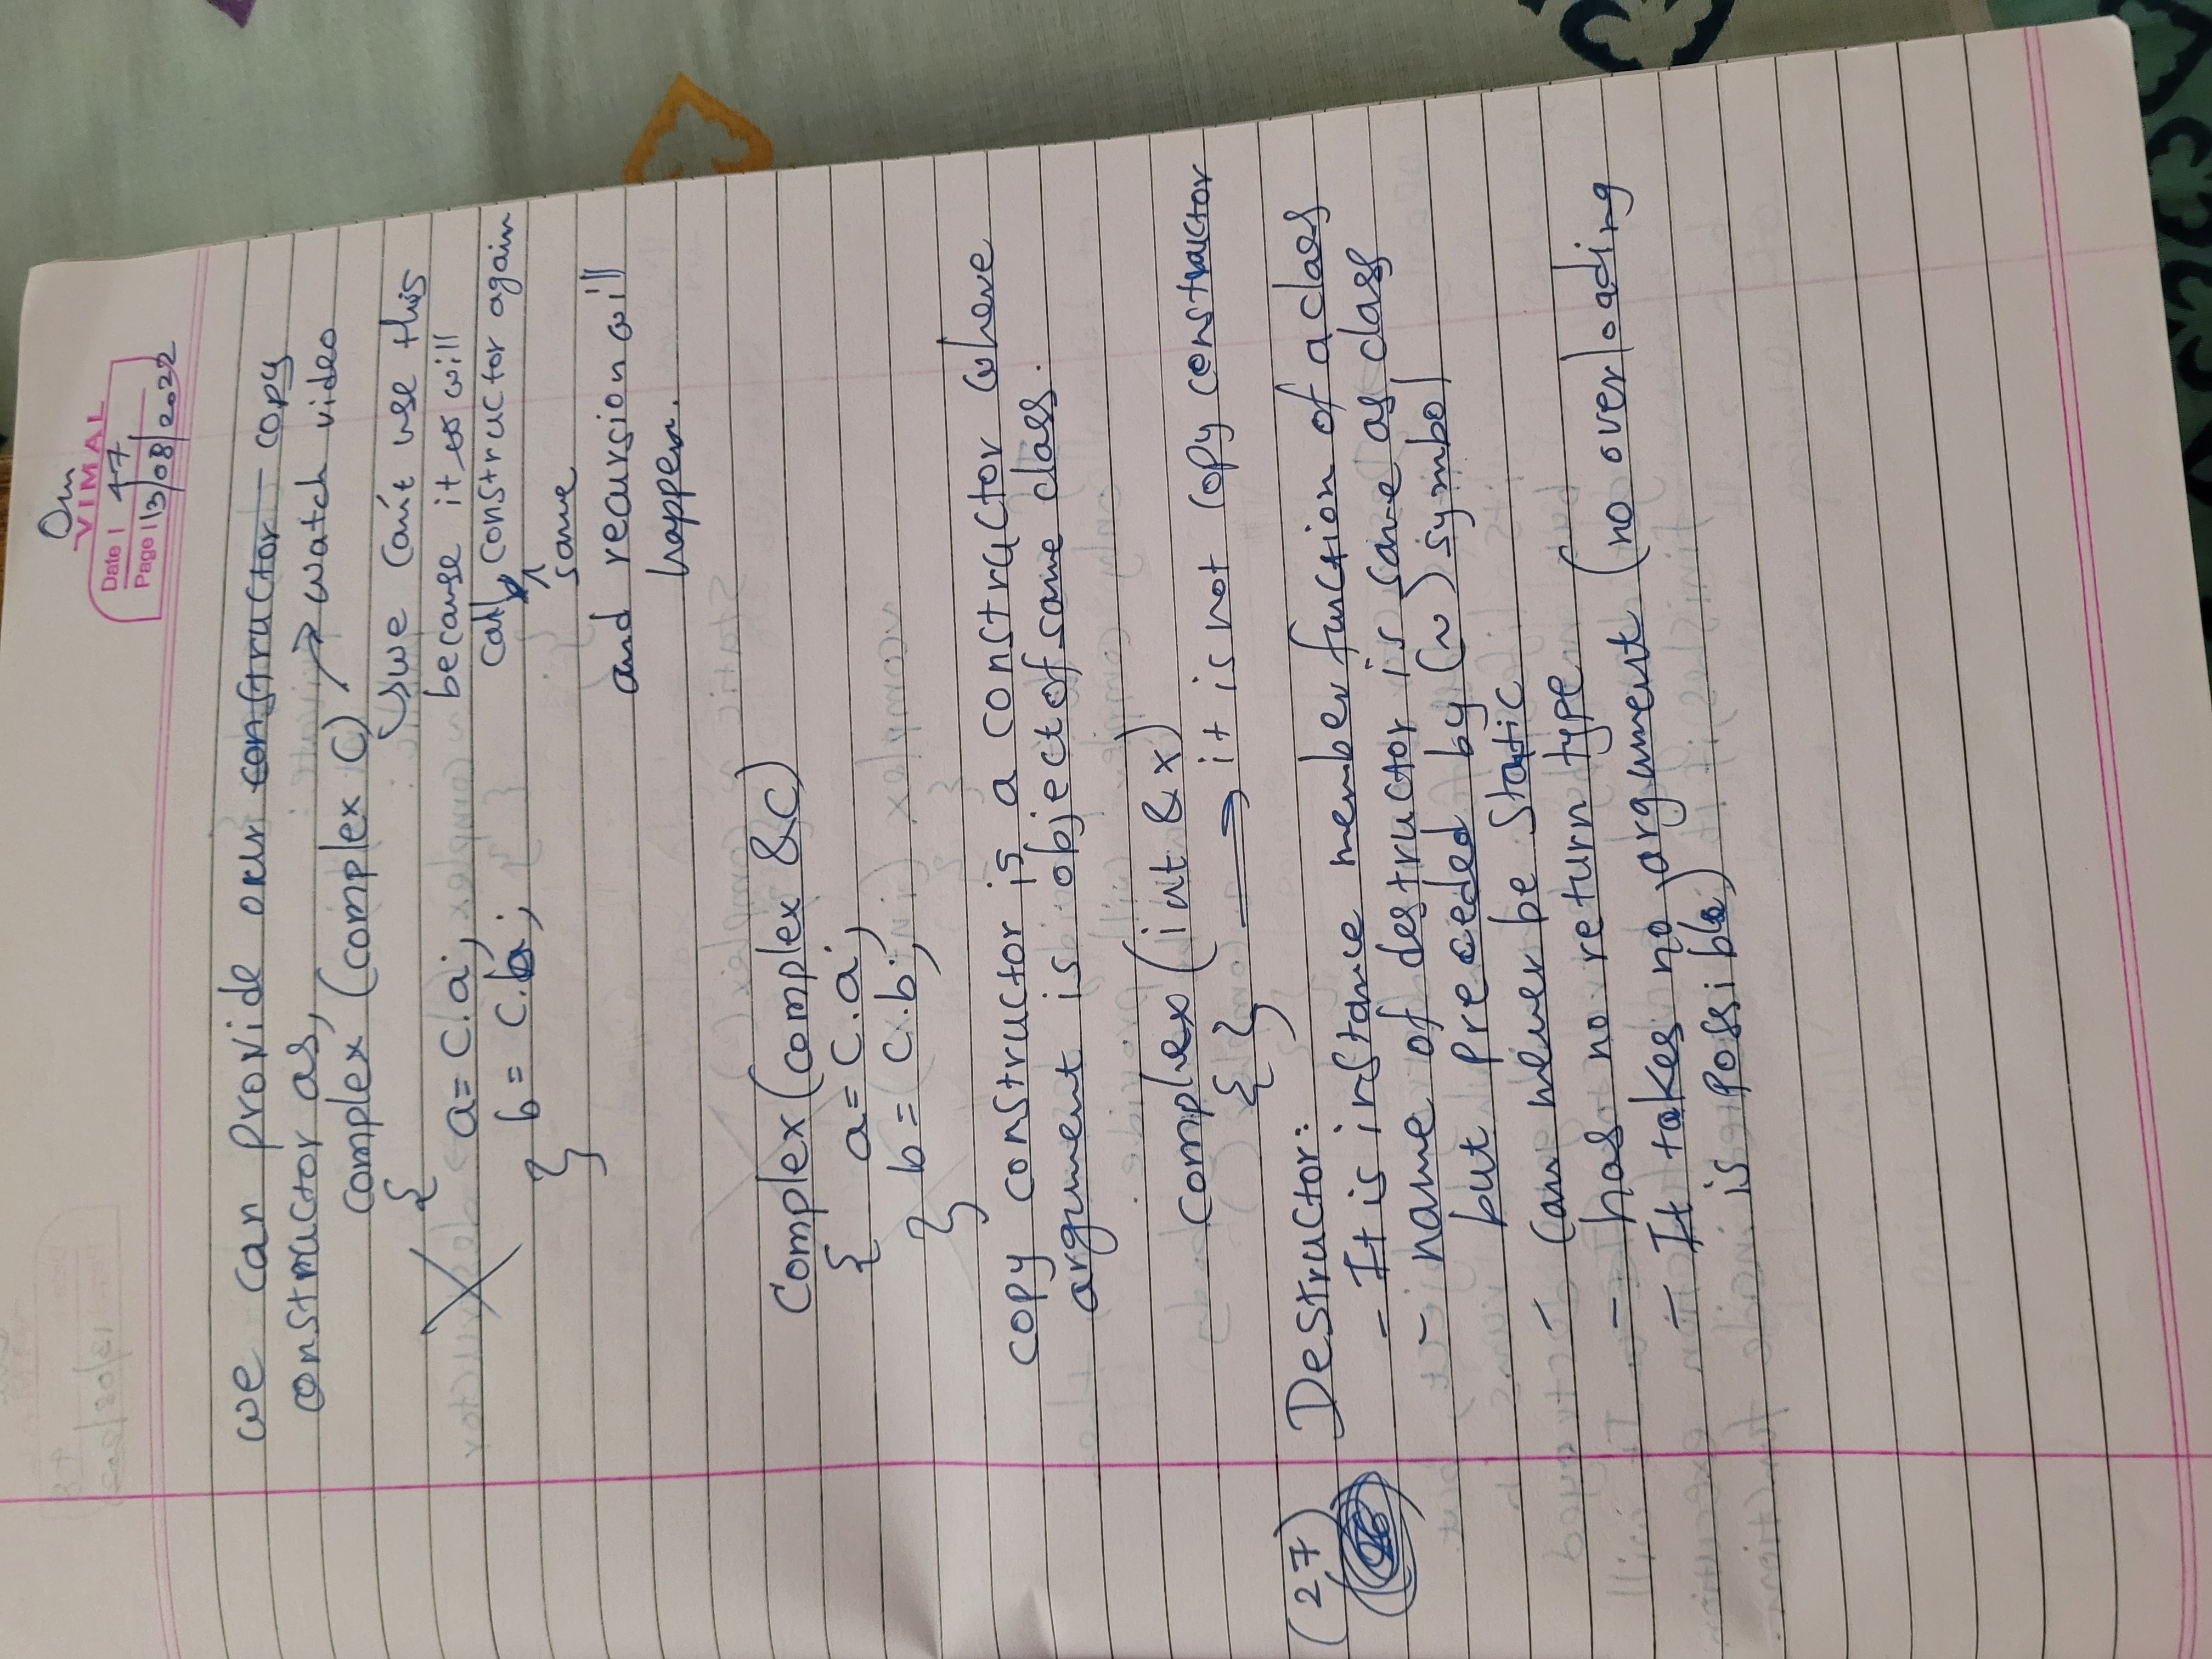 Om
VIMAL
Date | 47
Page | 13/08/2022
we can provide our constructor copy
constructor as,
→ watch video
complex (complex C)
{
↳ we can't use this
a = c.a;
because it will
b = c.b;
call constructor again
}
^
same
and recursion will
happen.
Complex (complex &C)
{ a = c.a;
b = c.b;
}
copy constructor is a constructor where
argument is object of same class.
complex (int &x)
{ } → it is not copy constructor
(27) Destructor:
26
- It is instance member function of a class
- name of destructor is same as class
but preceded by (~) symbol
- can never be static
- has no return type
- It takes no argument (no overloading
is possible)